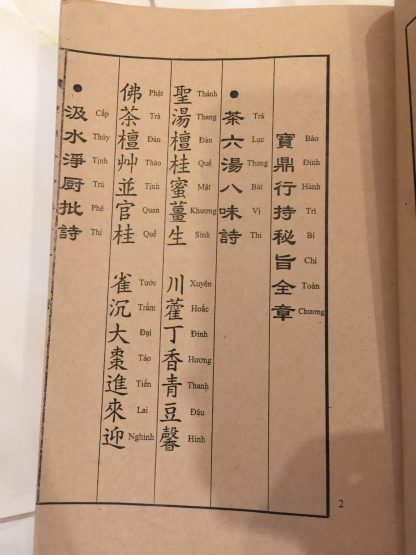 寶鼎行持秘旨全章
Bảo Đỉnh Hành Trì Bí Chỉ Toàn Chương
● 茶六湯八味詩
Trà Lục Thang Bát Vị Thi
聖湯檀桂蜜薑生 川藿丁香青豆馨
Thánh Thang Đàn Quế Mật Khương Sinh Xuyên Hoắc Đinh Hương Thanh Đậu Hinh
佛茶檀艸並官桂 雀沉大棗進來迎
Phật Trà Đàn Thảo Tịnh Quan Quế Tước Trầm Đại Táo Tiến Lai Nghinh
● 汲水淨厨批詩
Cấp Thủy Tịnh Trù Phê Thi
2